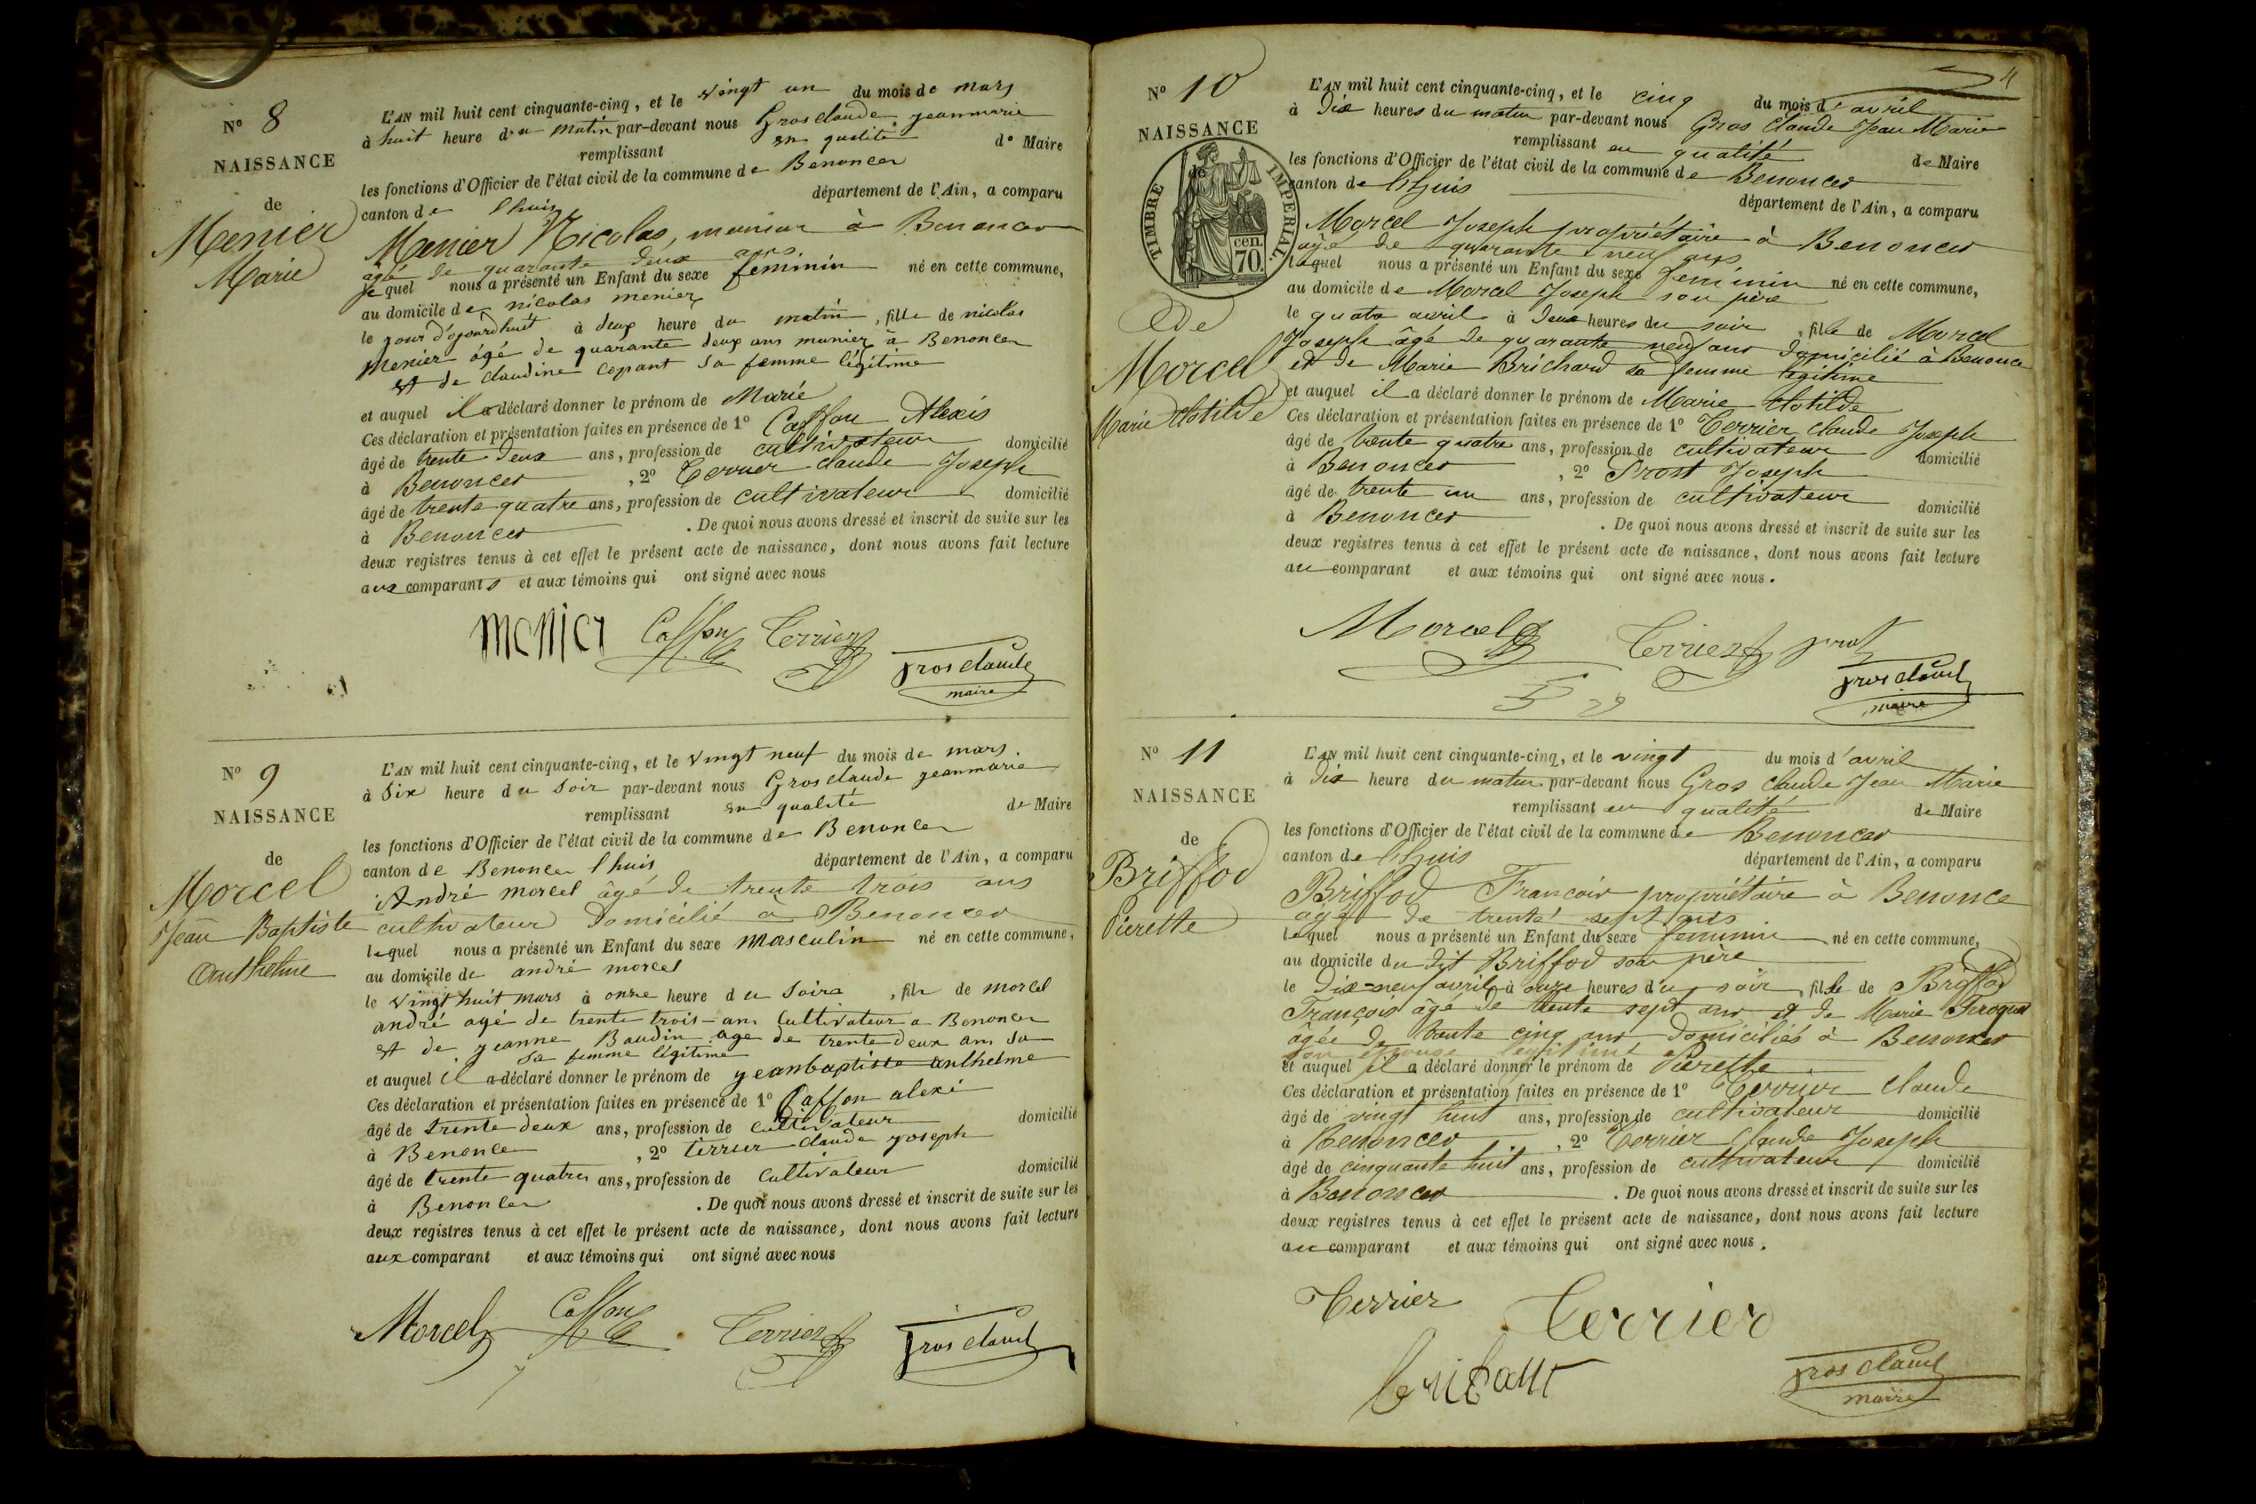 N° 8
NAISSANCE
de
Menier
Marie
L'AN mil huit cent cinquante-cinq, et le vingt un du mois de mars
à huit heure du matin par-devant nous Grosclaude jeanmarie
remplissant en qualité de Maire
les fonctions d'Officier de l'état civil de la commune de Benonces
canton de lhuis département de l'Ain, a comparu
Menier Nicolas, meunier à Benonces
âgé de quarante deux ans
lequel nous a présenté un Enfant du sexe feminin né en cette commune,
au domicile de nicolas menier
le jour d'ojourdhuit à deux heure du matin, fille de nicolas
menier âgé de quarante deux ans munier à Benonces
et de claudine copant sa femme légitime
et auquel il a déclaré donner le prénom de Marie
Ces déclaration et présentation faites en présence de 1° Caffon Alexis
âgé de trente deux ans, profession de cultivateur domicilié
à Benonces, 2° Terrier claude Joseph
âgé de trente quatre ans, profession de cultivateur domicilié
à Benonces. De quoi nous avons dressé et inscrit de suite sur les
deux registres tenus à cet effet le présent acte de naissance, dont nous avons fait lecture
aux comparants et aux témoins qui ont signé avec nous
menier Caffon Terrier
grosclaude
maire
N° 9
NAISSANCE
de
Morcel
Jean Baptiste
Anthelme
L'AN mil huit cent cinquante-cinq, et le vingt neuf du mois de mars.
à Six heure du Soir par-devant nous Grosclaude jeanmarie
remplissant en qualité de Maire
les fonctions d'Officier de l'état civil de la commune de Benonces
canton de Benonces lhuis département de l'Ain, a comparu
André morcel âgé de trente trois ans
cultivateur Domicilié à Benonces
lequel nous a présenté un Enfant du sexe masculin né en cette commune,
au domicile de andré morcel
le vingt huit mars à onne heure du Soira, fils de morcel
andré agé de trente trois ans Cultivateur a Benonces
et de jeanne Baudin age de trente deux ans sa
sa femme légitime
et auquel il a déclaré donner le prénom de jeanbaptiste anthelme
Ces déclaration et présentation faites en présence de 1° Caffon alexi
âgé de trente deux ans, profession de Cultivateur domicilié
à Benonce, 2° terrier claude joseph
âgé de trente quatres ans, profession de Cultivateur domicilié
à Benonces. De quoi nous avons dressé et inscrit de suite sur les
deux registres tenus à cet effet le présent acte de naissance, dont nous avons fait lecture
aux comparant et aux témoins qui ont signé avec nous
Morcel Caffon Terrier grosclaude
4
N° 10
NAISSANCE
TIMBRE IMPERIAL
cen.
70.
de
Morcel
Marie Clotilde
L'AN mil huit cent cinquante-cinq, et le cinq du mois d'avril
à Dix heures du matin par-devant nous Gros Claude Jean Marie
remplissant en qualité de Maire
les fonctions d'Officier de l'état civil de la commune de Benonces
canton de Lhuis département de l'Ain, a comparu
Morcel Joseph propriétaire à Benonces
âgé de quarante neuf ans
lequel nous a présenté un Enfant du sexe feminin né en cette commune,
au domicile de Morcel Joseph son père
le quatre avril à Deux heures du soir, fille de Morcel
Joseph âgé de quarante neuf ans domicilié à Benonces
et de Marie Brichard sa femme legitime
et auquel il a déclaré donner le prénom de Marie Clotilde
Ces déclaration et présentation faites en présence de 1° Terrier claude Joseph
âgé de trente quatre ans, profession de cultivateur domicilié
à Benonces, 2° Prost Joseph
âgé de trente un ans, profession de cultivateur domicilié
à Benonces. De quoi nous avons dressé et inscrit de suite sur les
deux registres tenus à cet effet le présent acte de naissance, dont nous avons fait lecture
au comparant et aux témoins qui ont signé avec nous.
Morcel Terrier prost
grosclaude
maire
N° 11
NAISSANCE
de
Briffod
Pierette
L'AN mil huit cent cinquante-cinq, et le vingt du mois d'avril
à Dix heure du matin par-devant nous Gros claude Jean Marie
remplissant en qualité de Maire
les fonctions d'Officier de l'état civil de la commune de Benonces
canton de Lhuis département de l'Ain, a comparu
Briffod François propriétaire à Benonce
âgé de trente sept ans
lequel nous a présenté un Enfant du sexe feminin né en cette commune,
au domicile du dit Briffod son père
le Dix-neuf avril à onze heures d'u soir, fille de Briffod
François âgé de trente sept ans et de Marie
âgée de trente cinq ans Domiciliés à Benonces
son épouse legitime
et auquel il a déclaré donner le prénom de Pierette
Ces déclaration et présentation faites en présence de 1° Terrier claude
âgé de vingt huit ans, profession de cultivateur domicilié
à Benonces, 2° Terrier Claude Joseph
âgé de cinquante huit ans, profession de cultivateur domicilié
à Benonces. De quoi nous avons dressé et inscrit de suite sur les
deux registres tenus à cet effet le présent acte de naissance, dont nous avons fait lecture
au comparant et aux témoins qui ont signé avec nous.
Terrier Terrier
grosclaude
maire